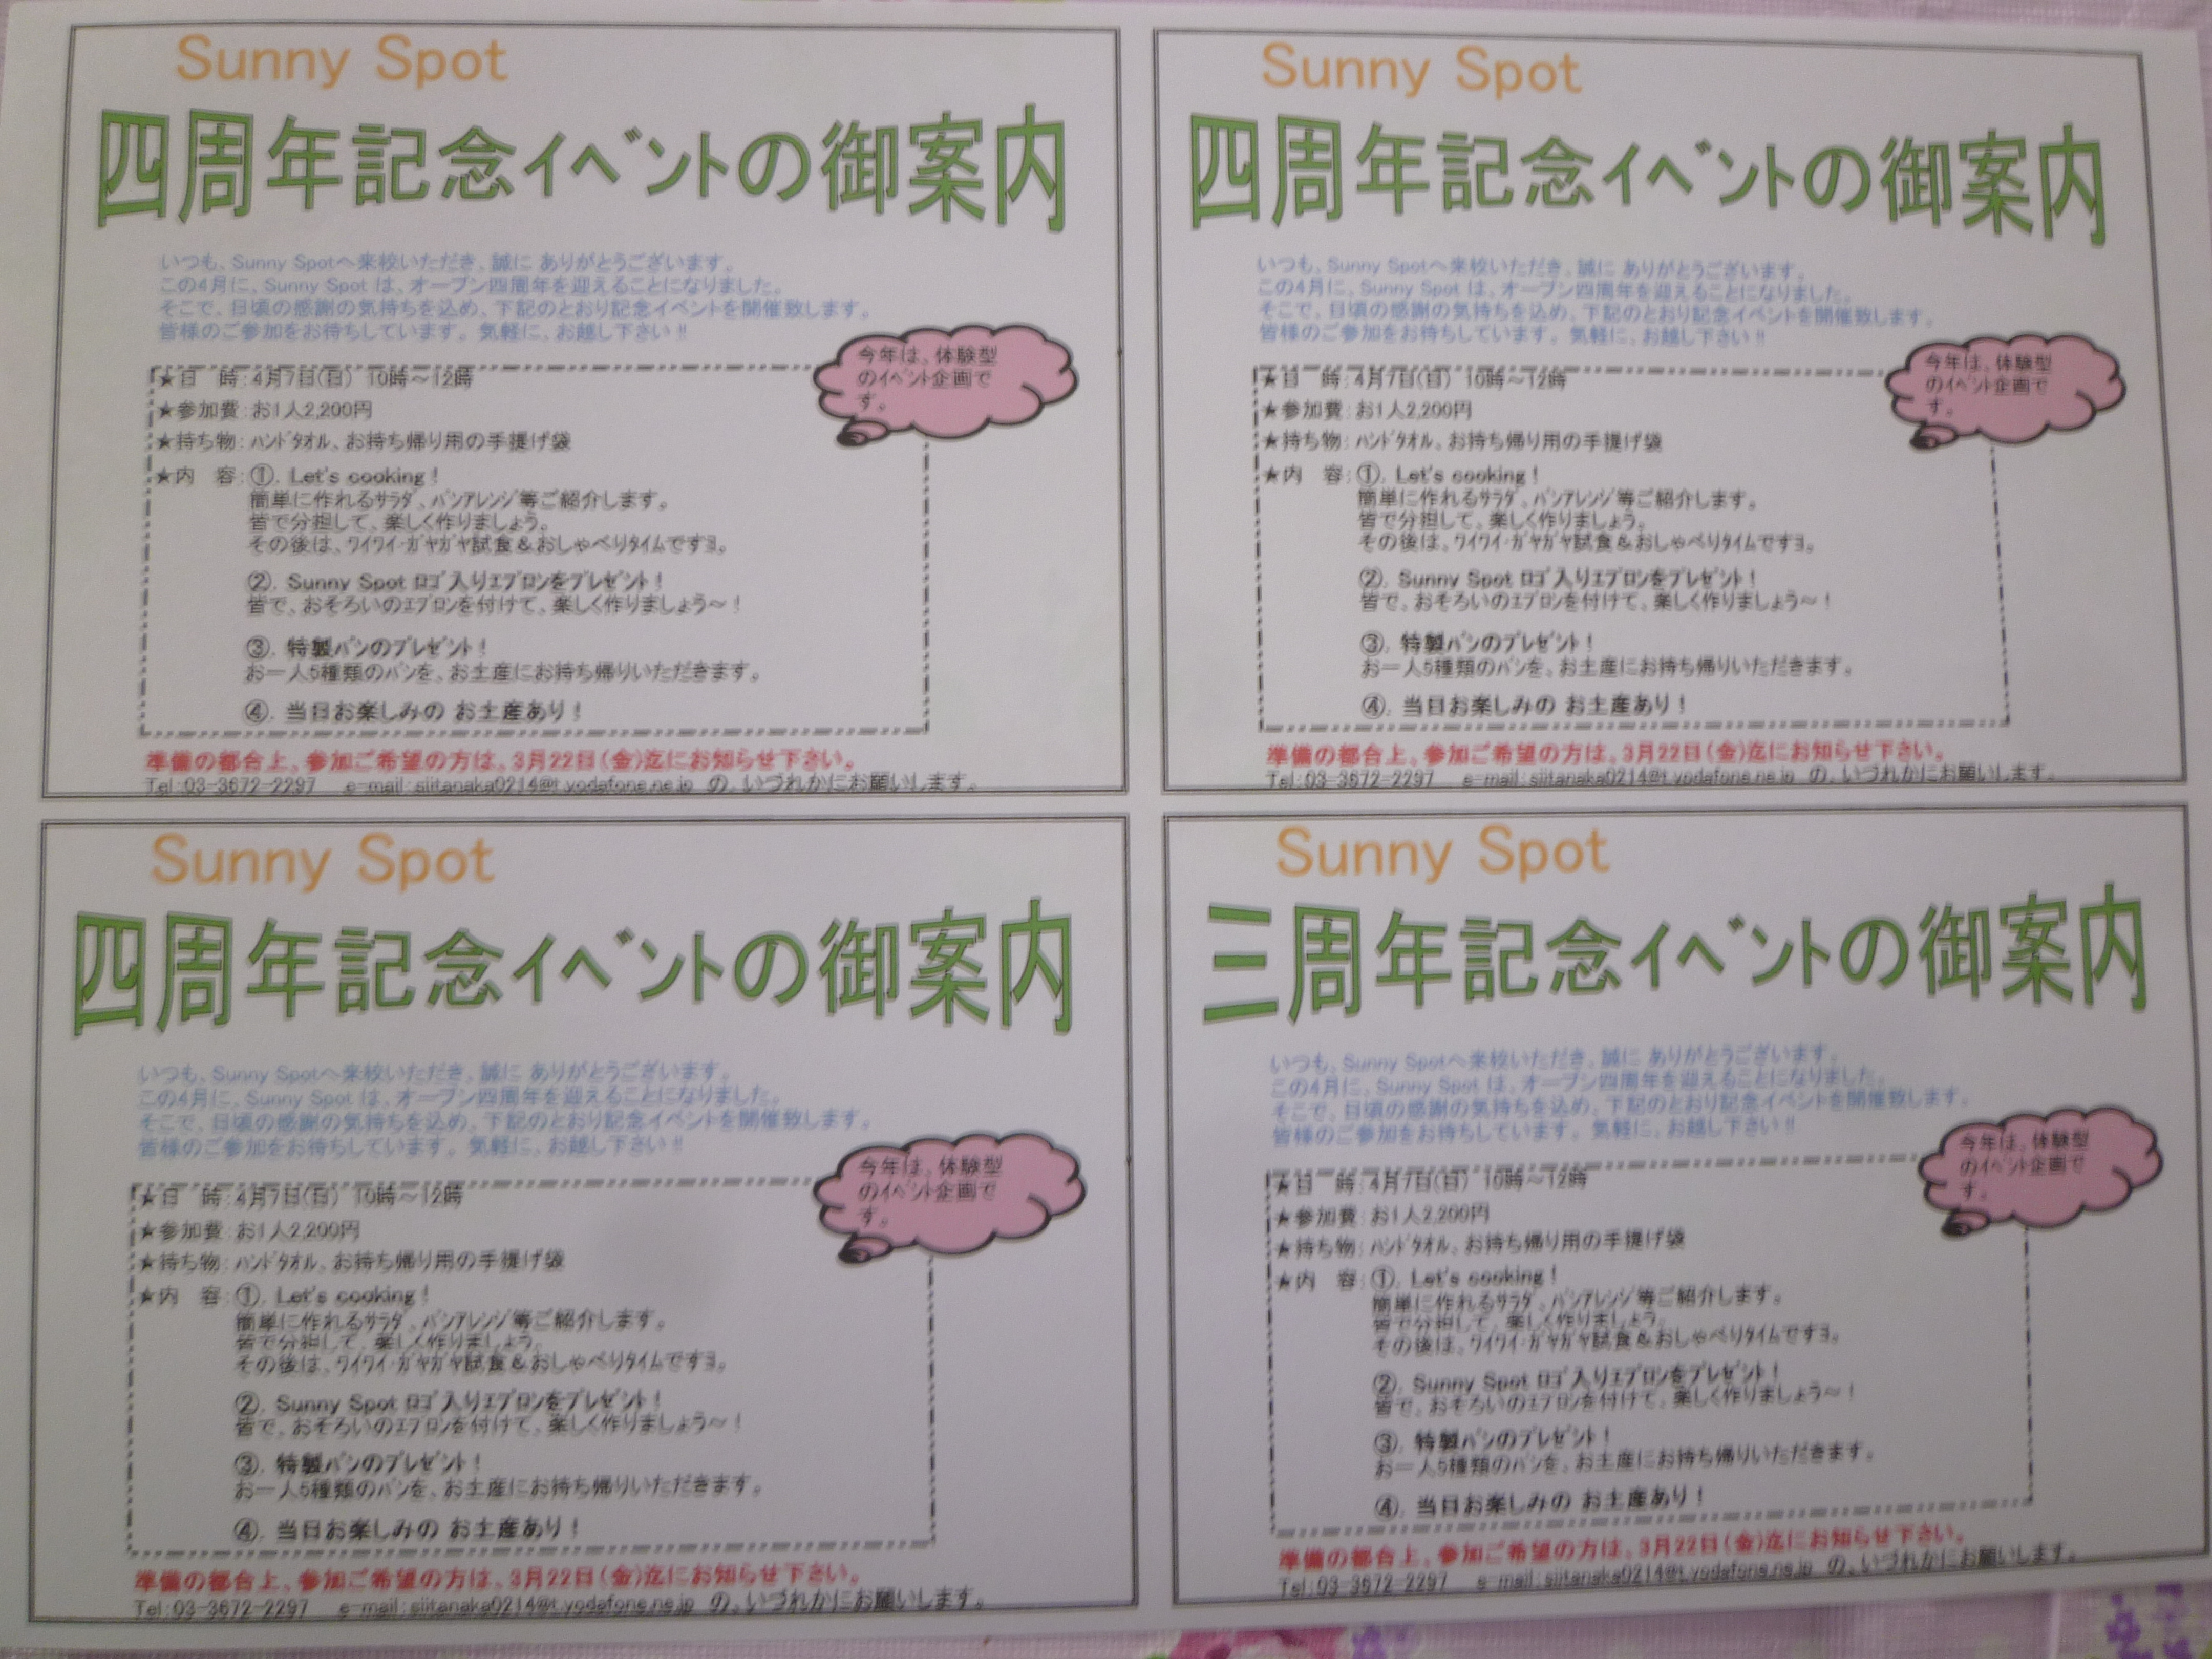 Sunny Spot
四周年記念イベントの御案内
いつも、Sunny Spotへ来校いただき、誠に ありがとうございます。
この4月に、Sunny Spot は、オープン四周年を迎えることになりました。
そこで、日頃の感謝の気持ちを込め、下記のとおり記念イベントを開催致します。
皆様のご参加をお待ちしています。気軽に、お越し下さい!!
今年は、体験型
のイベント企画で
す。
★日　時：4月7日(日)　10時～12時
★参加費：お1人2,200円
★持ち物：ハンドタオル、お持ち帰り用の手提げ袋
★内　容：①. Let's cooking！
簡単に作れるサラダ、パンアレンジ等ご紹介します。
皆で分担して、楽しく作りましょう。
その後は、ワイワイ・ガヤガヤ試食＆おしゃべりタイムですヨ。
②. Sunny Spot ロゴ入りエプロンをプレゼント！
皆で、おそろいのエプロンを付けて、楽しく作りましょう～！
③. 特製パンのプレゼント！
お一人5種類のパンを、お土産にお持ち帰りいただきます。
④. 当日お楽しみの お土産あり！
準備の都合上、参加ご希望の方は、3月22日(金)迄にお知らせ下さい。
Tel：03-3672-2297　e-mail：siitanaka0214@t.vodafone.ne.jp　の、いづれかにお願いします。
Sunny Spot
四周年記念イベントの御案内
いつも、Sunny Spotへ来校いただき、誠に ありがとうございます。
この4月に、Sunny Spot は、オープン四周年を迎えることになりました。
そこで、日頃の感謝の気持ちを込め、下記のとおり記念イベントを開催致します。
皆様のご参加をお待ちしています。気軽に、お越し下さい!!
今年は、体験型
のイベント企画で
す。
★日　時：4月7日(日)　10時～12時
★参加費：お1人2,200円
★持ち物：ハンドタオル、お持ち帰り用の手提げ袋
★内　容：①. Let's cooking！
簡単に作れるサラダ、パンアレンジ等ご紹介します。
皆で分担して、楽しく作りましょう。
その後は、ワイワイ・ガヤガヤ試食＆おしゃべりタイムですヨ。
②. Sunny Spot ロゴ入りエプロンをプレゼント！
皆で、おそろいのエプロンを付けて、楽しく作りましょう～！
③. 特製パンのプレゼント！
お一人5種類のパンを、お土産にお持ち帰りいただきます。
④. 当日お楽しみの お土産あり！
準備の都合上、参加ご希望の方は、3月22日(金)迄にお知らせ下さい。
Tel：03-3672-2297　e-mail：siitanaka0214@t.vodafone.ne.jp　の、いづれかにお願いします。
Sunny Spot
四周年記念イベントの御案内
いつも、Sunny Spotへ来校いただき、誠に ありがとうございます。
この4月に、Sunny Spot は、オープン四周年を迎えることになりました。
そこで、日頃の感謝の気持ちを込め、下記のとおり記念イベントを開催致します。
皆様のご参加をお待ちしています。気軽に、お越し下さい!!
今年は、体験型
のイベント企画で
す。
★日　時：4月7日(日)　10時～12時
★参加費：お1人2,200円
★持ち物：ハンドタオル、お持ち帰り用の手提げ袋
★内　容：①. Let's cooking！
簡単に作れるサラダ、パンアレンジ等ご紹介します。
皆で分担して、楽しく作りましょう。
その後は、ワイワイ・ガヤガヤ試食＆おしゃべりタイムですヨ。
②. Sunny Spot ロゴ入りエプロンをプレゼント！
皆で、おそろいのエプロンを付けて、楽しく作りましょう～！
③. 特製パンのプレゼント！
お一人5種類のパンを、お土産にお持ち帰りいただきます。
④. 当日お楽しみの お土産あり！
準備の都合上、参加ご希望の方は、3月22日(金)迄にお知らせ下さい。
Tel：03-3672-2297　e-mail：siitanaka0214@t.vodafone.ne.jp　の、いづれかにお願いします。
Sunny Spot
三周年記念イベントの御案内
いつも、Sunny Spotへ来校いただき、誠に ありがとうございます。
この4月に、Sunny Spot は、オープン四周年を迎えることになりました。
そこで、日頃の感謝の気持ちを込め、下記のとおり記念イベントを開催致します。
皆様のご参加をお待ちしています。気軽に、お越し下さい!!
今年は、体験型
のイベント企画で
す。
★日　時：4月7日(日)　10時～12時
★参加費：お1人2,200円
★持ち物：ハンドタオル、お持ち帰り用の手提げ袋
★内　容：①. Let's cooking！
簡単に作れるサラダ、パンアレンジ等ご紹介します。
皆で分担して、楽しく作りましょう。
その後は、ワイワイ・ガヤガヤ試食＆おしゃべりタイムですヨ。
②. Sunny Spot ロゴ入りエプロンをプレゼント！
皆で、おそろいのエプロンを付けて、楽しく作りましょう～！
③. 特製パンのプレゼント！
お一人5種類のパンを、お土産にお持ち帰りいただきます。
④. 当日お楽しみの お土産あり！
準備の都合上、参加ご希望の方は、3月22日(金)迄にお知らせ下さい。
Tel：03-3672-2297　e-mail：siitanaka0214@t.vodafone.ne.jp　の、いづれかにお願いします。